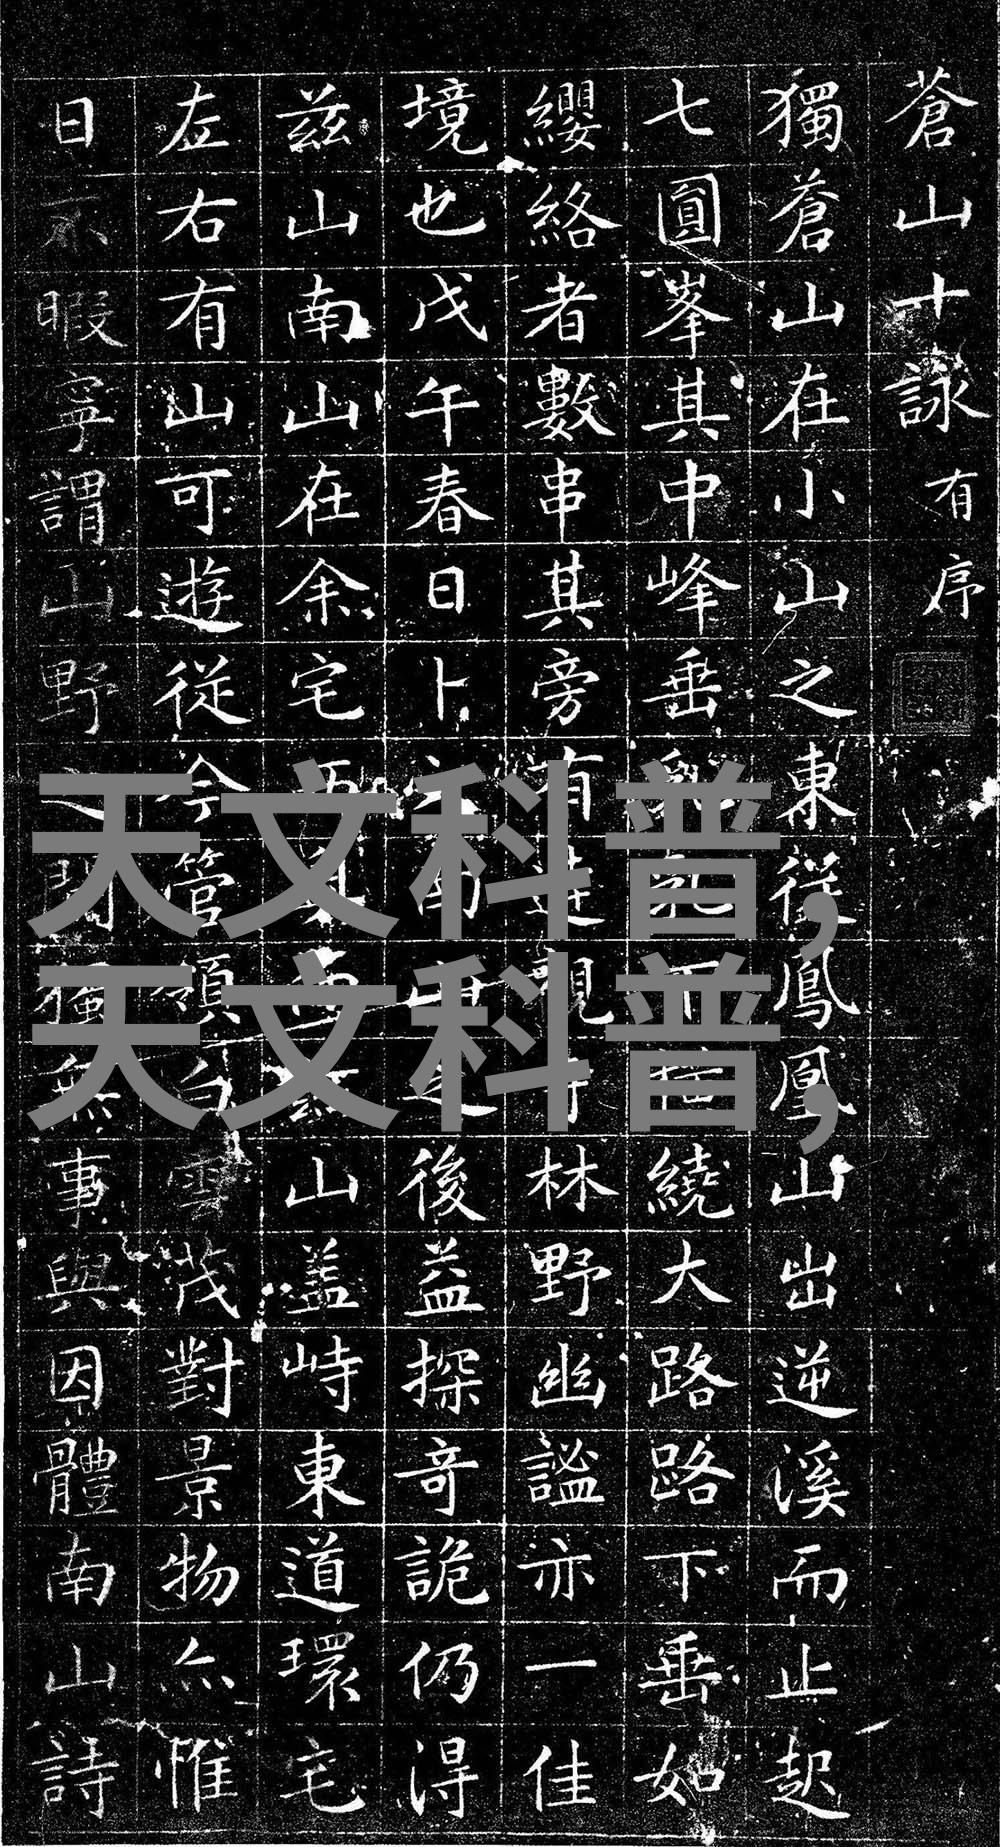 蒼山十詠 有序
獨蒼山在小山之東從鳳凰山出逆溪而止起
七圓峯其中峰垂乳下 繞大路路下垂如
纓絡者數串其旁有進 林野幽謐亦一佳
境也戊午春日卜 南 後益探奇詭仍得
茲山南山在余宅 山蓋峙東道環宅
左右有山可遊從今管領白雲茂對景物亦惟
日不暇寧謂山野之 獨無事與因體南山詩
天文科普,
天文科普,